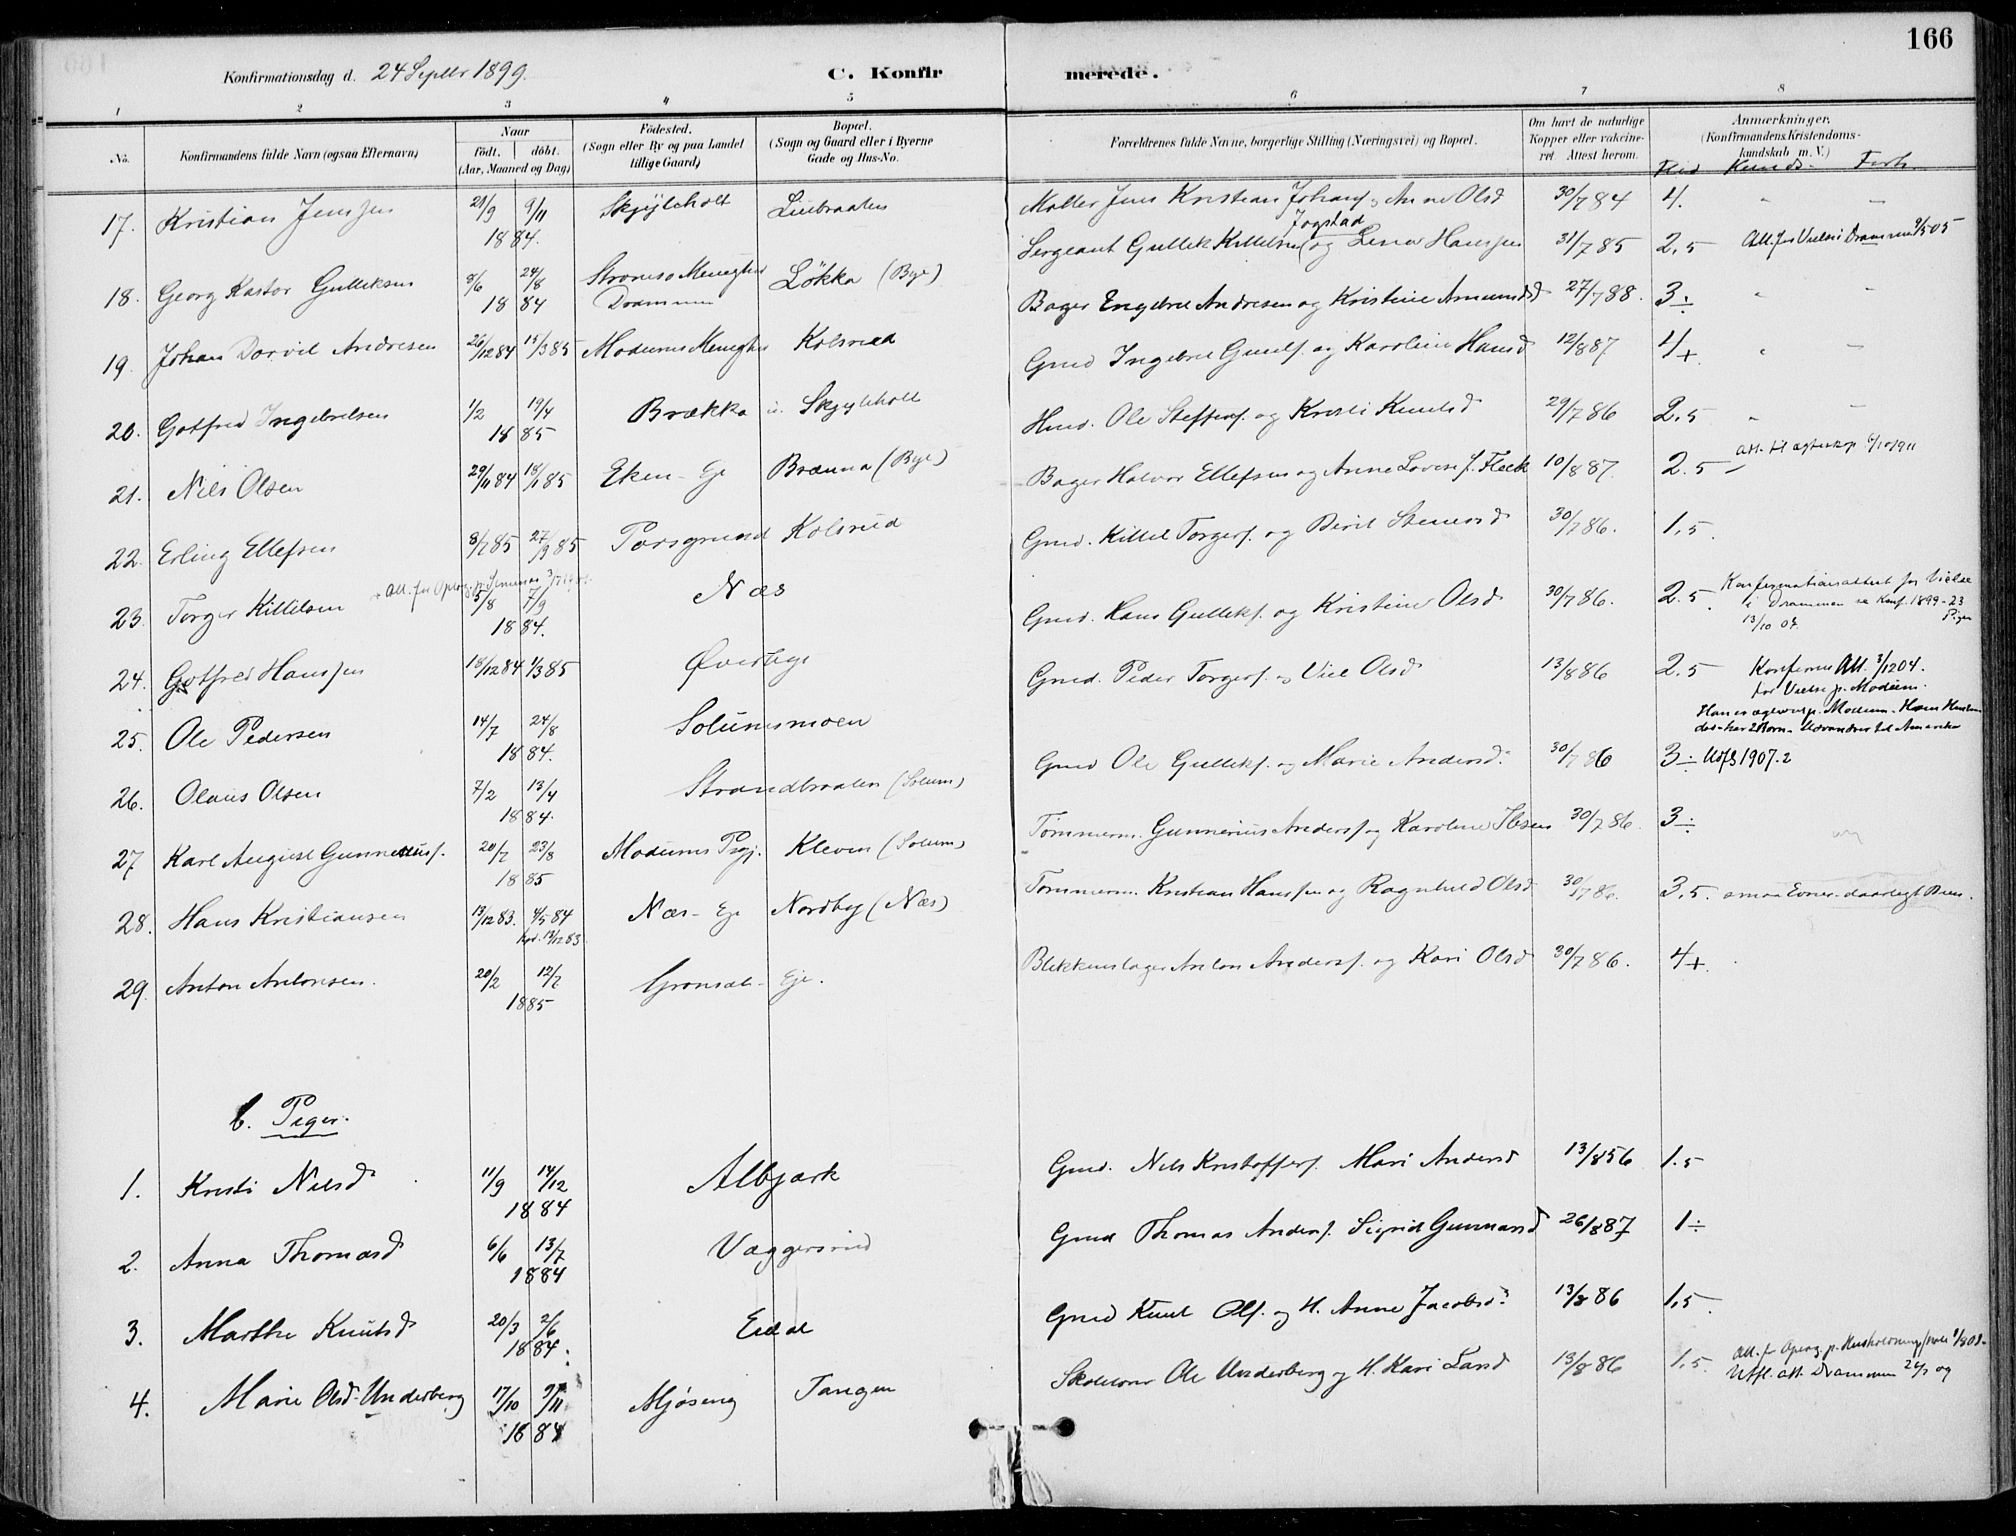 166
Konfirmationsdag d. 24 Septbr 1899. C. Konfirmerede.
1 2 3 4 5 6 7 8
No. Konfirmandens fulde Navn (ogsaa Efternavn) Naar födt. döbt. (Aar, Maaned og Dag) Födested. (Sogn eller By og paa Landet tillige Gaard) Bopæl. (Sogn og Gaard eller i Byerne Gade og Hus-No. Forældrenes fulde Navne, borgerlige Stilling (Næringsvei) og Bopæl. Om havt de naturlige Kopper eller vakcineret. Attest herom. Anmærkninger. (Konfirmandens Kristendomskundskab m. V.)
Flid Kundsk. Forh.
17. Kristian Jenssen 21/9 9/11 1884. Skjyleholt Liebraaten Møller Jens Kristian Johans. og Anne Olsd 30/7 84 4. " "
18. Georg Kastor Gulleksen 8/6 24/8 1884 Strømsø Menighed Drammen Løkka (Bye) Sergeant Gullek Killelsen Jogstad og Lena Hanssen 31/7 85 2,5 Att. for Vielse i Drammen 9/5 05
19. Johan Dorvil Andresen 26/12 84 15/3 85 Modums Menighed Kolsrud Bager Engebret Andresen og Kristine Amundsd 27/7 88. 3÷ " "
20. Gotfred Ingebretsen 1/2 19/4 1885 Brækka u. Skjyleholt Gmd Ingebret Guuls. og Karoline Hansd 12/8 87 4+ " "
21. Nils Olsen 29/11 84 18/1 85 Eken - Eje Brænna (Bye) Hmd. Ole Steffens. og Kristi Knutsd 29/7 86 2,5 "
22. Erling Ellefsen 8/7 85 27/9 85 Porsgrund Kolsrud Bager Halvor Ellefsen og Anne Lovise J. Fleck 10/8 87. 2.5 Att. til ægteskap 6/10 1911
23. Torger Killelsen Att. for Optag. p. Seminar 5/8 7/9 1884. Næs Gmd. Kittel Torgers. og Berit Stensrd 30/7 86. 1,5
24. Gotfred Hanssen 18/12 84 1/3 85 Øverbye Gmd. Hans Gulleks. og Kristine Olsd 30/7 86. 2.5 Konfirmationsattest for Vielse i Drammen se Konf. 1899 - 23 Piger 13/10 07.
25. Ole Pedersen 14/7 24/8 1884. Solumsmoen Gmd. Peder Torgers. og Viel Olsd 13/8 86 2.5 Konfirm Att. 3/12 04. for Vielse p. Modum.
Han er ægteviet p. Modum - Hans Hustru døs - har 2 Børn - Udvandrer til Amerika
26. Olaus Olsen 7/2 13/4 1884. Strandbraaten (Solum) Gmd Ole Gulleks. og Marie Andersd. 30/7 86 3÷ Udfl 1907. 2
27 Karl August Gunneriuss. 20/7 23/8 1885 Modums Prgj. Kleven (Solum) Tømmerm. Gunnerius Anders. og Karoline Ibsen 30/7 86. 3÷
28. Hans Kristiansen 13/12 83. 4/5 84 hjd. 13/12 83. Næs - Eje Nordby (Næs) Tømmerm. Kristian Hanssen og Ragnhild Olsd. 30/7 86. 3,5. smaa Evner. daarligt Bien.
29. Anton Antonsen. 20/2 12/7 1885 Grønsæt - Eje. Blikkenslager Anton Anders. og Kari Olsd 30/7 86. 4+.
b. Piger.
1. Kristi Nilsd 11/9 14/12 1884 Albjærk Gmd. Nils Kristoffers. Mari Andersd 13/8 56 1.5
2. Anna Thomasd 6/6 13/7 1884 Væggersrud Gmd Thomas Anders. Sigrid Gunnarsd 26/8 87 1÷
3. Marthe Knutsd 20/3 2/6 1884. Eidal Gmd Knut Ols. og H. Anne Jacobsd. 13/8 86 1,5.
4. Marie Olsd. Underberg 17/10 9/11 1884 Mjøseng Tangen Skolelærer Ole Underberg og H. Kari Larsd 13/8 86 1,5 Att. f. Optag. p. Husholdningsskole 1/8 02.
Utfl. att. Drammen 24/1 09